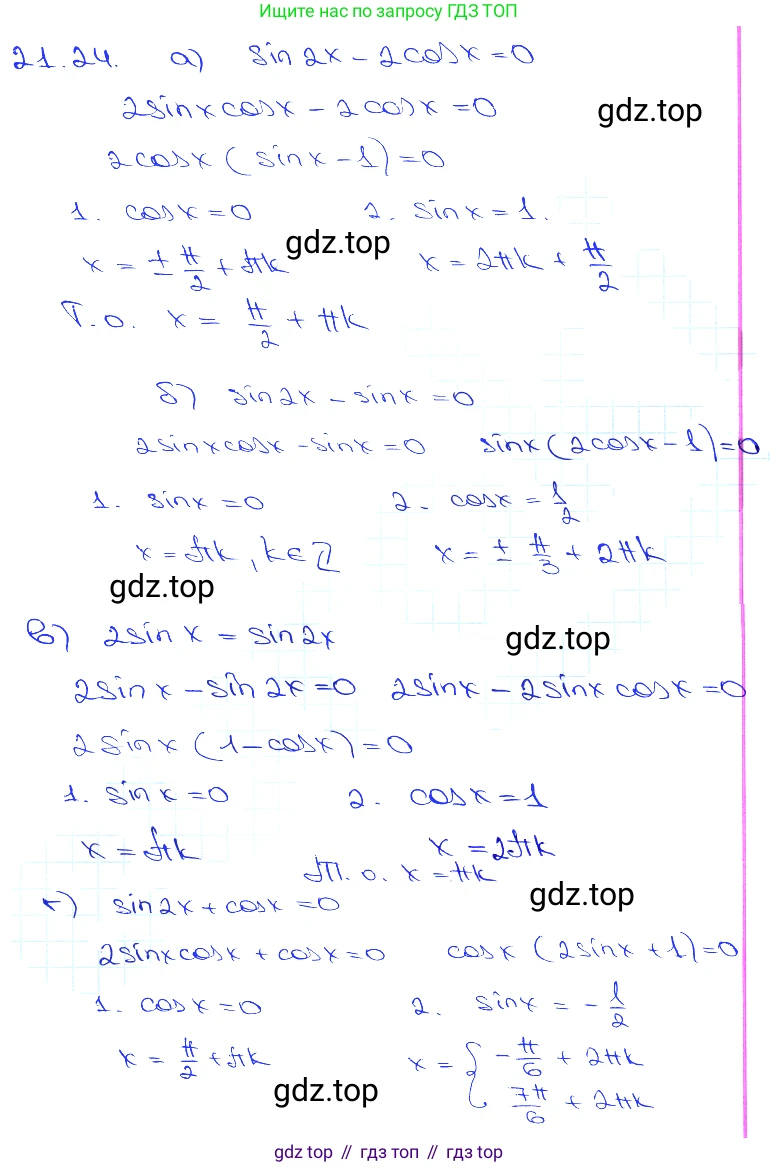 Ищите нас по запросу ГДЗ ТОП
21.24. а) sin2x - 2cosx = 0
2sinxcosx - 2cosx = 0
gdz.top
2cosx (sinx - 1) = 0
1. cosx = 0 2. sinx = 1.
gdz.top
x = ± π/2 + πk x = 2πk + π/2
Т.о. x = π/2 + πk
б) sin2x - sinx = 0
2sinxcosx - sinx = 0 sinx(2cosx - 1) = 0
1. sinx = 0 2. cosx = 1/2
x = πk, k ∈ Z x = ± π/3 + 2πk
gdz.top
в) 2sinx = sin2x
gdz.top
2sinx - sin2x = 0 2sinx - 2sinxcosx = 0
2sinx (1 - cosx) = 0
1. sinx = 0 2. cosx = 1
x = πk x = 2πk
Т.о. x = πk
г) sin2x + cosx = 0
gdz.top
2sinxcosx + cosx = 0 cosx (2sinx + 1) = 0
1. cosx = 0 2. sinx = - 1/2
x = π/2 + πk x = { - π/6 + 2πk
7π/6 + 2πk
gdz.top
gdz top // гдз топ // gdz top